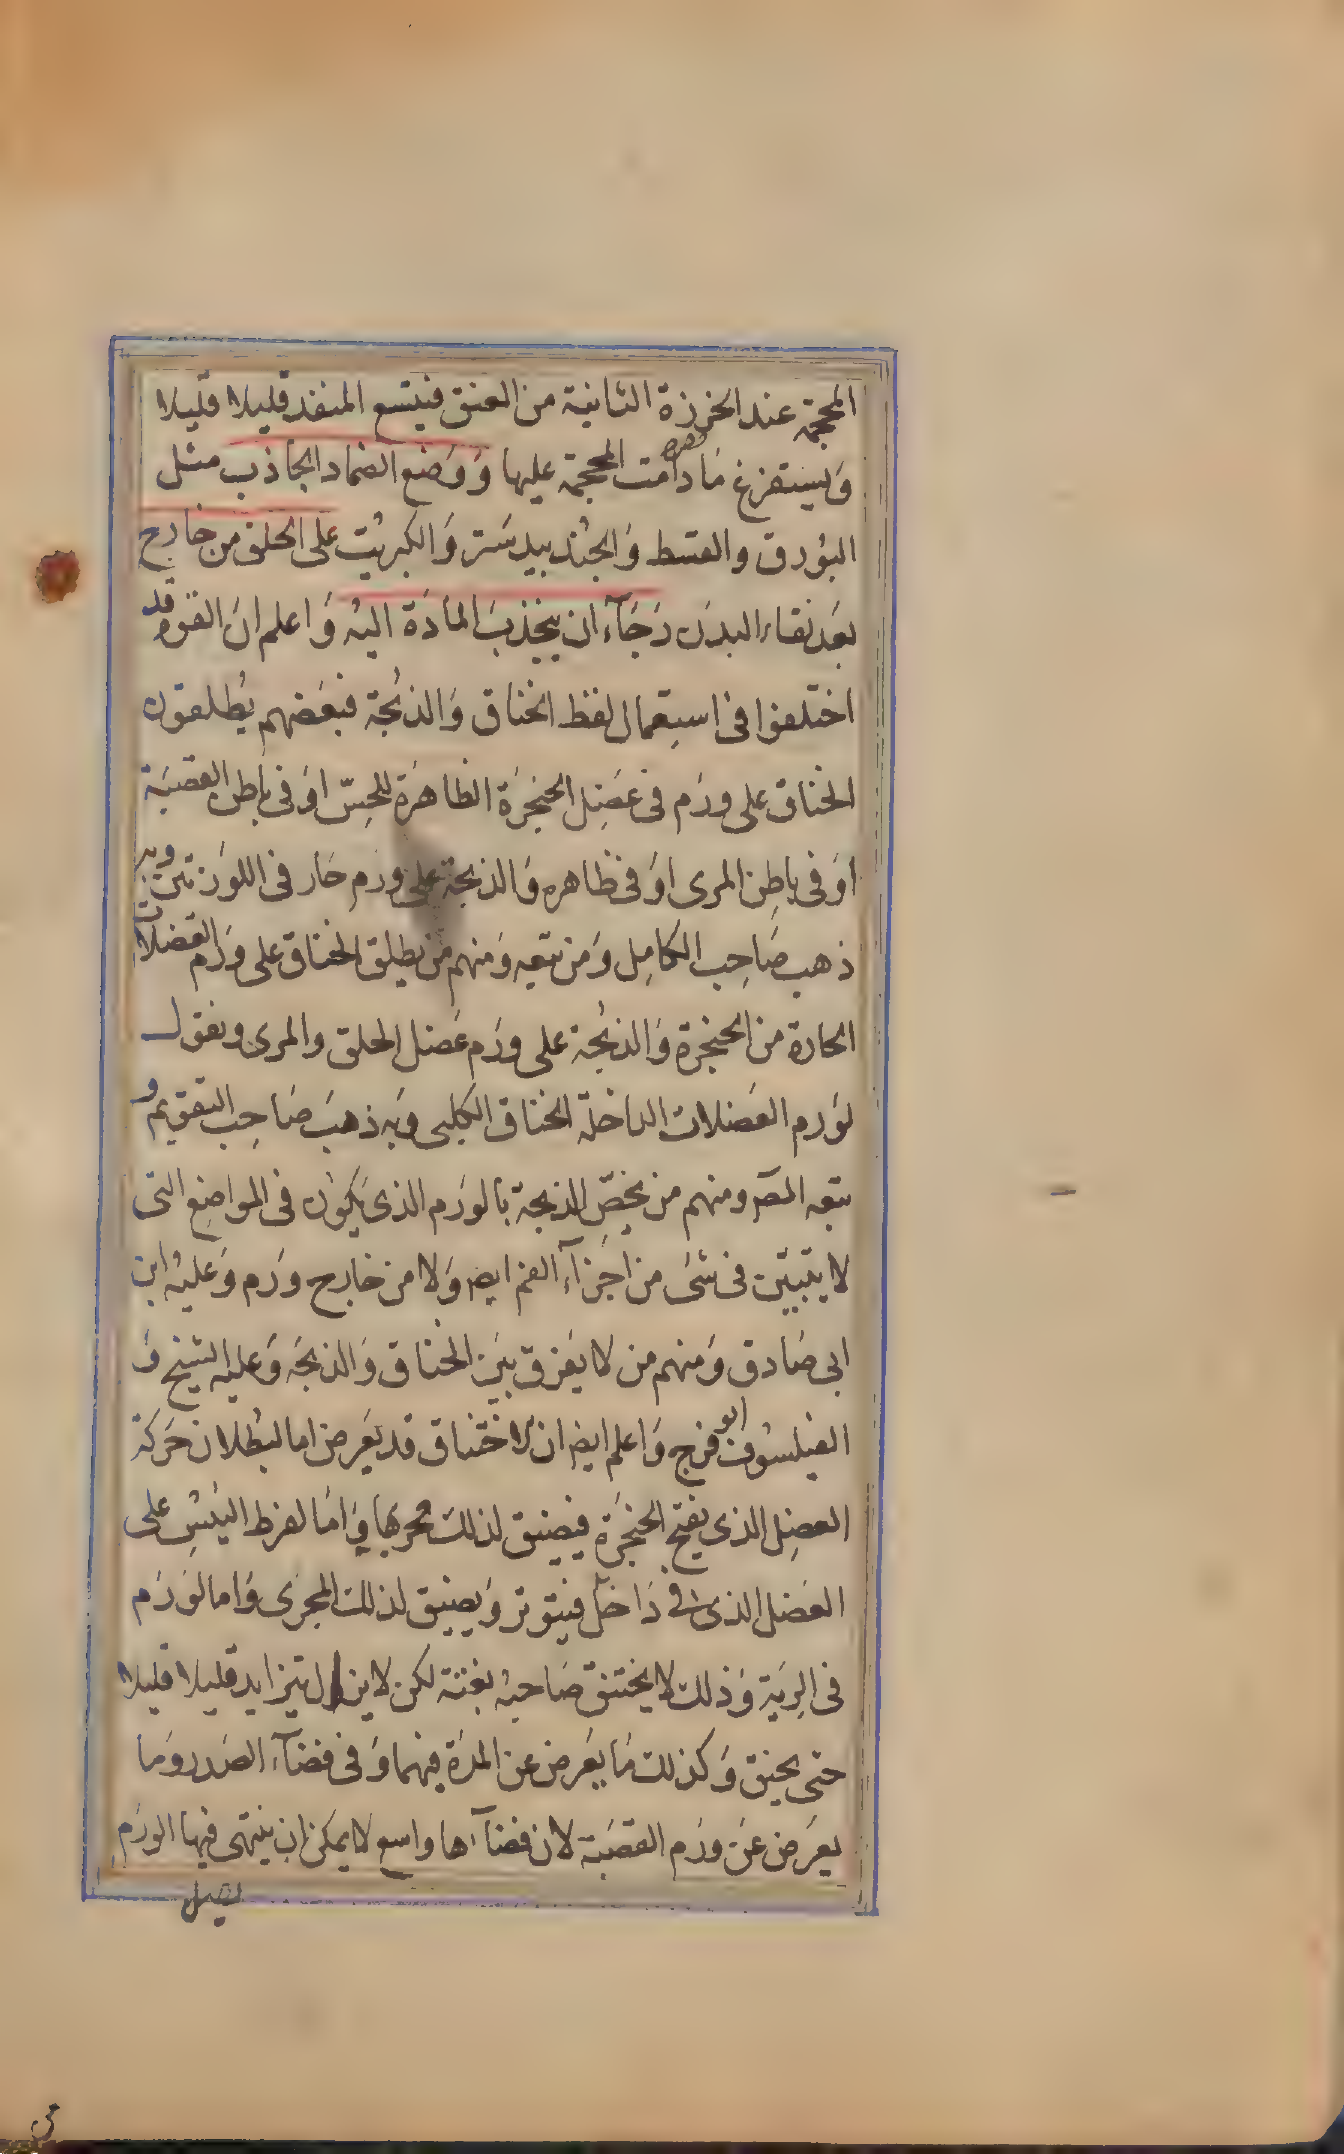 المحجمة عند الخرزة الثانية من العنق فيتسع المنفذ قليلا قليلا
وَيستفرغ مَا دامت المحجمة عليها وَوَضع الضماد الجاذب مثل
البوُرق والقسط وَالجُندبيدسَتر وَالكبريُت على الحلق من خارج
بعَد نقاء البدن رَجَآء ان ينجذبَ المادَة اليهُ وَاعلم انَ القوم قد
اختلفوا فى استِعمال لفظ الخناق وَالذبُحة فبعَضهم يُطلقون
الخناق على ورَم فى عَضِل الحنجرَة الظاهرَة للحِسّ اوَ فى باطن القصَبَة
اوَ فى باطِن المرى اوَ فى ظاهره وَالذبحة على ورَم حَار فى اللوَزتين وبه
ذهب صَاحِب الكامِل وَمَن تبعه وَمنهم من يطلق الخناق على وَرَم العضلات
الحادة من الحنجرة وَالذبُحة على ورَم عَضل الحلق والمرى ويقول
لوَرم العَضلات الداخلة الخناق الكلبى وَبه ذهبَ صَاحِب التقويم و
تبعه المصَ ومنهم من يخصّ الذبحة بالورَم الذى يَكوُن فى المواضِع التى
لا يتبيّن فى شىَ من اجَزآء الفم ايضَ وَلا من خارج ورَم وَعليهُ ابن
ابى صَادق وَمنهم من لا يفرق بيَن الخناق وَالذبحَة وَعليه الشيخ وَ
الفيلسُوف ابو فرج وَاعلم ايضَ ان الاختناق قد يعَرض اما لبُطلان حَركة
العضِل الذى يفتح الحنجَرة فيضيق لذلك مجريها وَامَا لفرط اليُبْسِ على
العَضل الذى فى دَاخل فيتوتر وَيضيق لذلك المجرَى وَاما لوَرَم
فى الرِيَة وَذلك لا يختنق صَاحبهُ بغتة لكن لا يزال يتزايد قليلا قليلا
حتى يخنق وَكذلك مَا يعَرض عن المدَة فيهما وَفى فضآء الصَدر وَما
يعرَض عَن ورَم القصَبَة لان فضآءها واسع لا يمكن ان ينتهى فيها الورَم